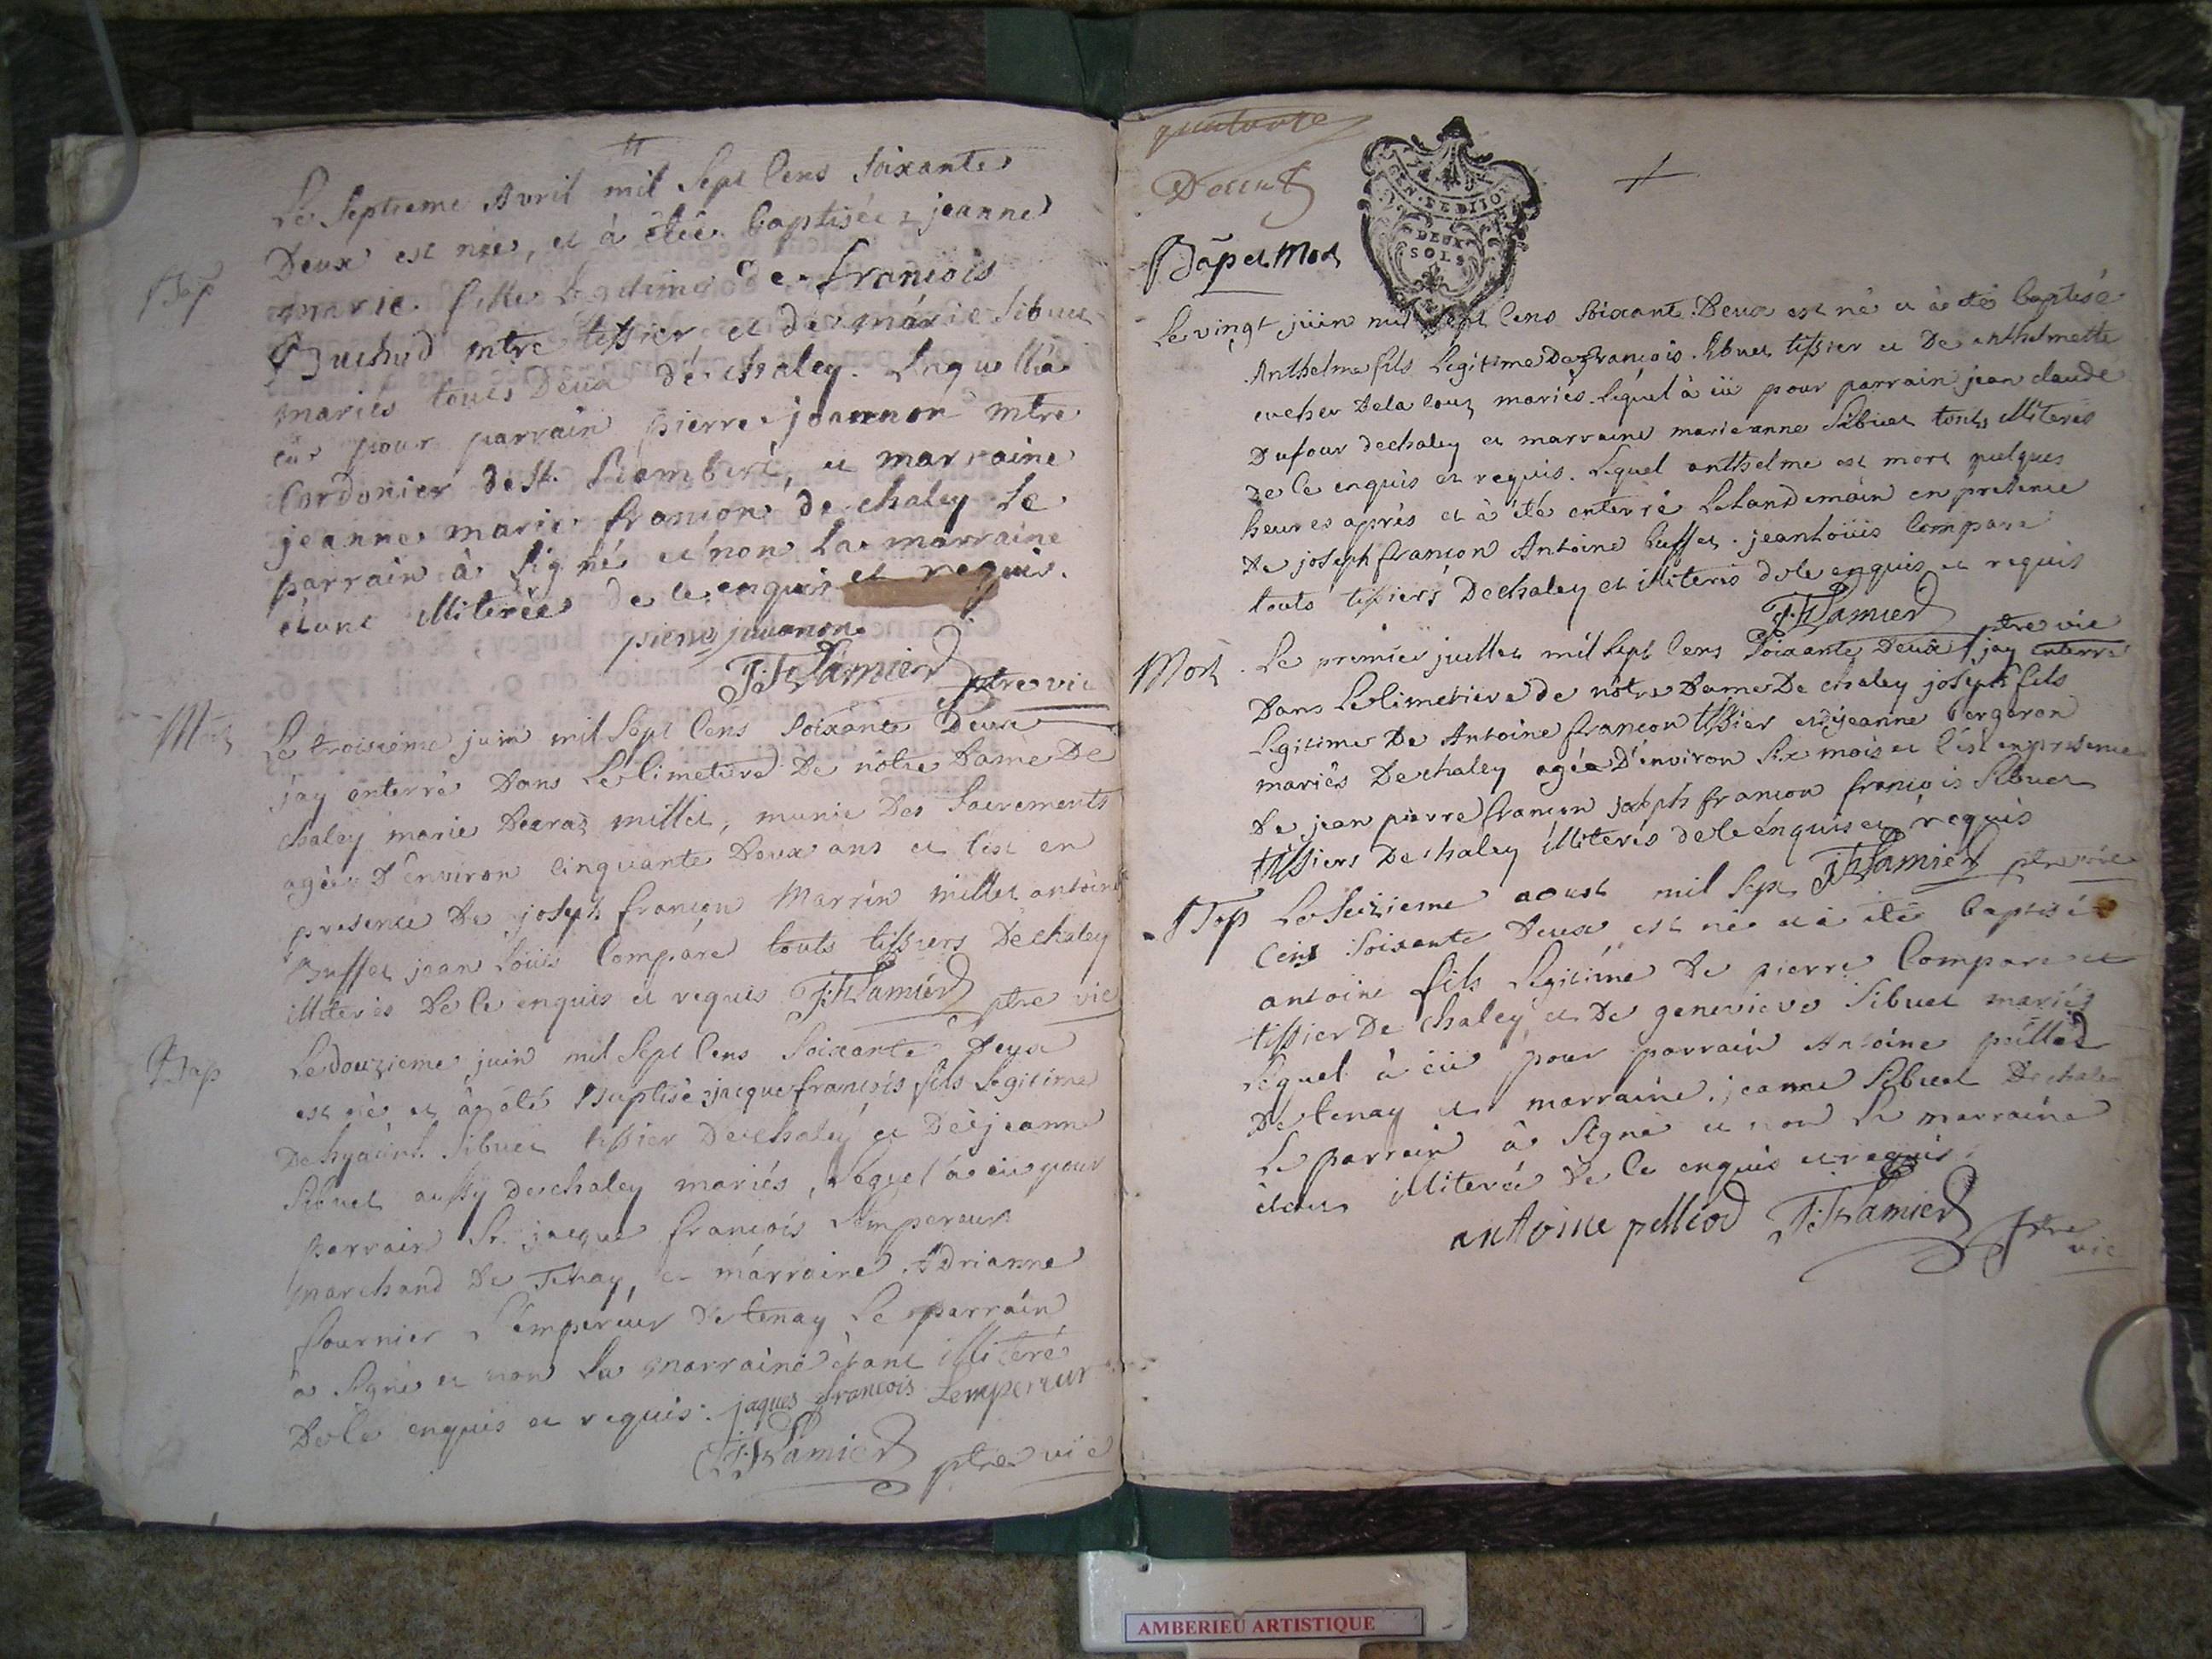 Bap
Le Septieme Avril mil Sept Cens Soixante
Deux est née, et à étée baptisée jeanne
marie fille Legitime De francois
Buchud mtre tissier et de marie Sibuet
mariés touts Deux de chaley. Laquelle à
eüe pour parrain pierre joannon mtre
Cordonier de St. Rambert, et marraine
jeanne marie francon de chaley Le
parrain à Signé et non La marraine
étant illiterée de ce enquis et requis.
pierre jouanon
J: Framier ptre vic
Mort
Le troisieme juin mil Sept Cens Soixante Deux
j'ay enterré Dans Le Cimetiere De nôtre Dame De
chaley marie millet, munie Des Sacrements
agée D'environ Cinquante Deux ans et c'est en
presence De joseph francon Marrin millet antoine
Buffet jean Loüis Compare touts tissiers De chaley
illiterés De ce enquis et requis J: Framier ptre vic
Bap
Le douzieme juin mil Sept Cens Soixante Deux
est né et à été Baptisé jacque francois fils Legitime
De hyacint Sibuet tissier De chaley et De jeanne
Sibuet aussy De chaley mariés, Lequel à eü pour
parrain Sr. jacque francois L'empereur
marchand De Tenay, et marraine Adrianne
fournier L'empereur de tenay Le parrain
a Signé et non La marraine étant illiteré
De ce enquis et requis. jaques francois Lempereur
J: Framier ptre vic
DEUX
SOLS
Bap et Mort
Le vingt juin mil Sept Cens Soixante Deux est né et à été baptisé
Anthelme fils Legitime De francois Sibuet tissier et De anthelmette
mariés. Lequel à eü pour parrain jean claude
Dufour de chaley et marraine marieanne Sibuet touts illiterés
de ce enquis et requis. Lequel anthelme est mort quelques
heures après et à été enterré Le Landemain en presence
De joseph francon Antoine buffet jean loüis Compare
touts tissiers De chaley et illiterés de ce enquis et requis
J: Framier ptre vic
Mort
Le premier juillet mil Sept Cens Soixante Deux jay enterré
Dans Le Cimetiere de nôtre Dame De chaley joseph fils
Legitime De Antoine francon tissier et de jeanne bergeron
mariés De chaley agée D'environ Six mois et c'est en presence
De jean pierre francon joseph francon francois Sibuet
tissiers De chaley illiterés de ce enquis et requis
J: Framier ptre vic
Bap
Le Seizieme aoust mil Sept
Cens Soixante Deux est né et à été baptisé
antoine fils Legitime De pierre Compare et
tissier De chaley et De genevieve Sibuet mariés
Lequel à eü pour parrain Antoine pelliod
De tenay et marraine jeanne Sibuet De chaley
Le parrain à Signé et non La marraine
étant illiterée de ce enquis et requis
antoine pelliod J: Framier ptre
vic
AMBERIEU ARTISTIQUE